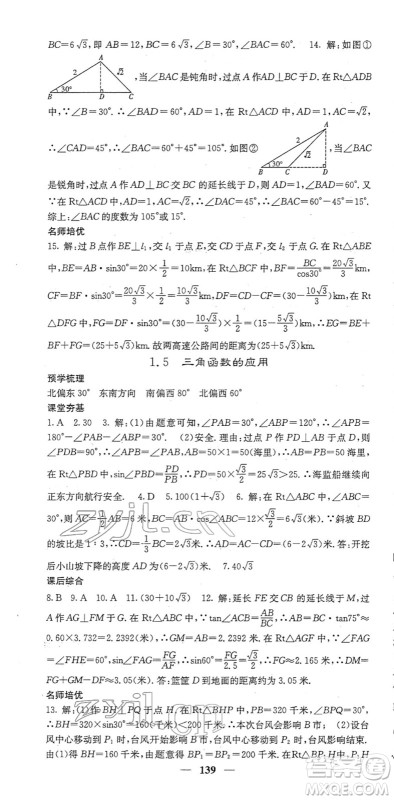 BC=6√3,即 AB=12,BC=6√3,∠B=30°,∠BAC=60°. 14. 解:如图①
A 2 √2 30° B D C ,当∠BAC 是钝角时,过点 A 作 AD⊥BC 于 D,在 Rt△ADB
中,∵∠B=30°,∴∠BAD=60°,AD=1,在 Rt△ACD 中,AD=1,AC=√2,
∴∠CAD=45°,∴∠BAC=60°+45°=105°. 如图② A 2 √2 30° B C D ,当∠BAC
是锐角时,过点 A 作 AD⊥BC 交 BC 的延长线于 D,则 AD=1,在 Rt△ACD
中,AD=1,AC=√2,∴∠DAC=45°,∴∠BAC=60°-45°=15°.
综上:∠BAC 的度数为 105°或 15°.
名师培优
15. 解:过 B 点作 BE⊥l₁,交 l₁ 于点 E,交 CD 于点 F,交 l₂ 于点 G. 在 Rt△ABE
中,BE=AB·sin30°=20×1/2=10km,在 Rt△BCF 中,BF=BC/cos30°=20√3/3 km,
CF=BF·sin30°=20√3/3×1/2=10√3/3 km,DF=CD-CF=(30-10√3/3)km,在 Rt
△DFG 中,FG=DF·sin30°=(30-10√3/3)×1/2=(15-5√3/3)km,∴EG=BE+
BF+FG=(25+5√3)km. 故两高速公路间的距离为(25+5√3)km.
1.5 三角函数的应用
预学梳理
北偏东 30° 东南方向 南偏西 80° 北偏西 60°
课堂夯基
1. A 2. 30 3. 解:(1)由题意可知,∠PAB=30°,∠ABP=120°,∴∠APB=
180°-∠PAB-∠ABP=30°. (2)安全. 理由:过点 P 作 PD⊥AB 于点 D,则
∠PDB=90°. ∵∠PAB=∠APB,∴BP=AB=50×1=50(海里),∵∠PBD=60°,
在 Rt△PBD 中,sin∠PBD=PD/PB,∴PD=PB·sin60°=25√3>25,∴海监船继续向
正东方向航行安全. 4. D 5. 100(1+√3) 6. 解:在 Rt△ABC 中,∵∠ABC=30°,
∴AC=1/2AB=6(米),BC=AB·cos∠ABC=12×√3/2=6√3(米),∵斜坡 BD
的坡比是 1∶3,∴CD=1/3BC=2√3 米,∴AD=AC-CD=(6-2√3)米. 答:开挖
后小山坡下降的高度 AD 为(6-2√3)米. 7. 40√3
课后综合
8. B 9. A 10. A 11. (30+10√3) 12. 解:延长 FE 交 CB 的延长线于 M,过
A 作 AG⊥FM 于 G. 在 Rt△ABC 中,∵tan∠ACB=AB/BC,∴AB=BC·tan75°≈
0.60×3.732=2.2392(米),∴GM=AB=2.2392(米),在 Rt△AGF 中,∵∠FAG=
∠FHE=60°,sin∠FAG=FG/AF,∴sin60°=FG/2.5=√3/2,∴FG≈2.165(米),∴DM=
FG+GM-DF≈3.05 米. 答:篮筐 D 到地面的距离约为 3.05 米.
名师培优
13. 解:(1)作 BH⊥PQ 于点 H,在 Rt△BHP 中,BP=320 千米,∠BPQ=30°,
∴BH=320×sin30°=160 千米<200 千米. ∴本次台风会影响 B 市;(2)设台
风中心移动到 P₁ 时,台风开始影响 B 市,台风中心移动到 P₂ 时,影响结束.
由(1)得 BH=160 千米,由题意得 BP₁=BP₂=200 千米,在 Rt△BHP₁ 中,P₁H
139
zyjl.cn
zyjl.cn
作业精灵